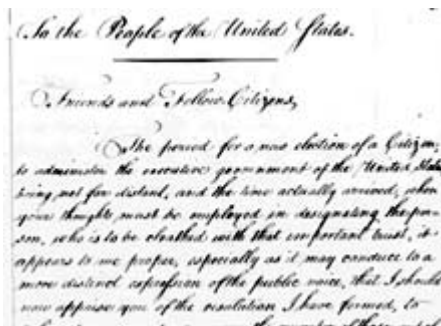 To the People of the United States.
Friends and Fellow-Citizens,
The period for a new election of a Citizen,
to administer the executive government of the United States
being not far distant, and the time actually arrived, when
your thoughts must be employed in designating the per-
son, who is to be cloathed with that important trust, it
appears to me proper, especially as it may conduce to a
more distinct expression of the public voice, that I should
now apprise you of the resolution I have formed, to
the number of those